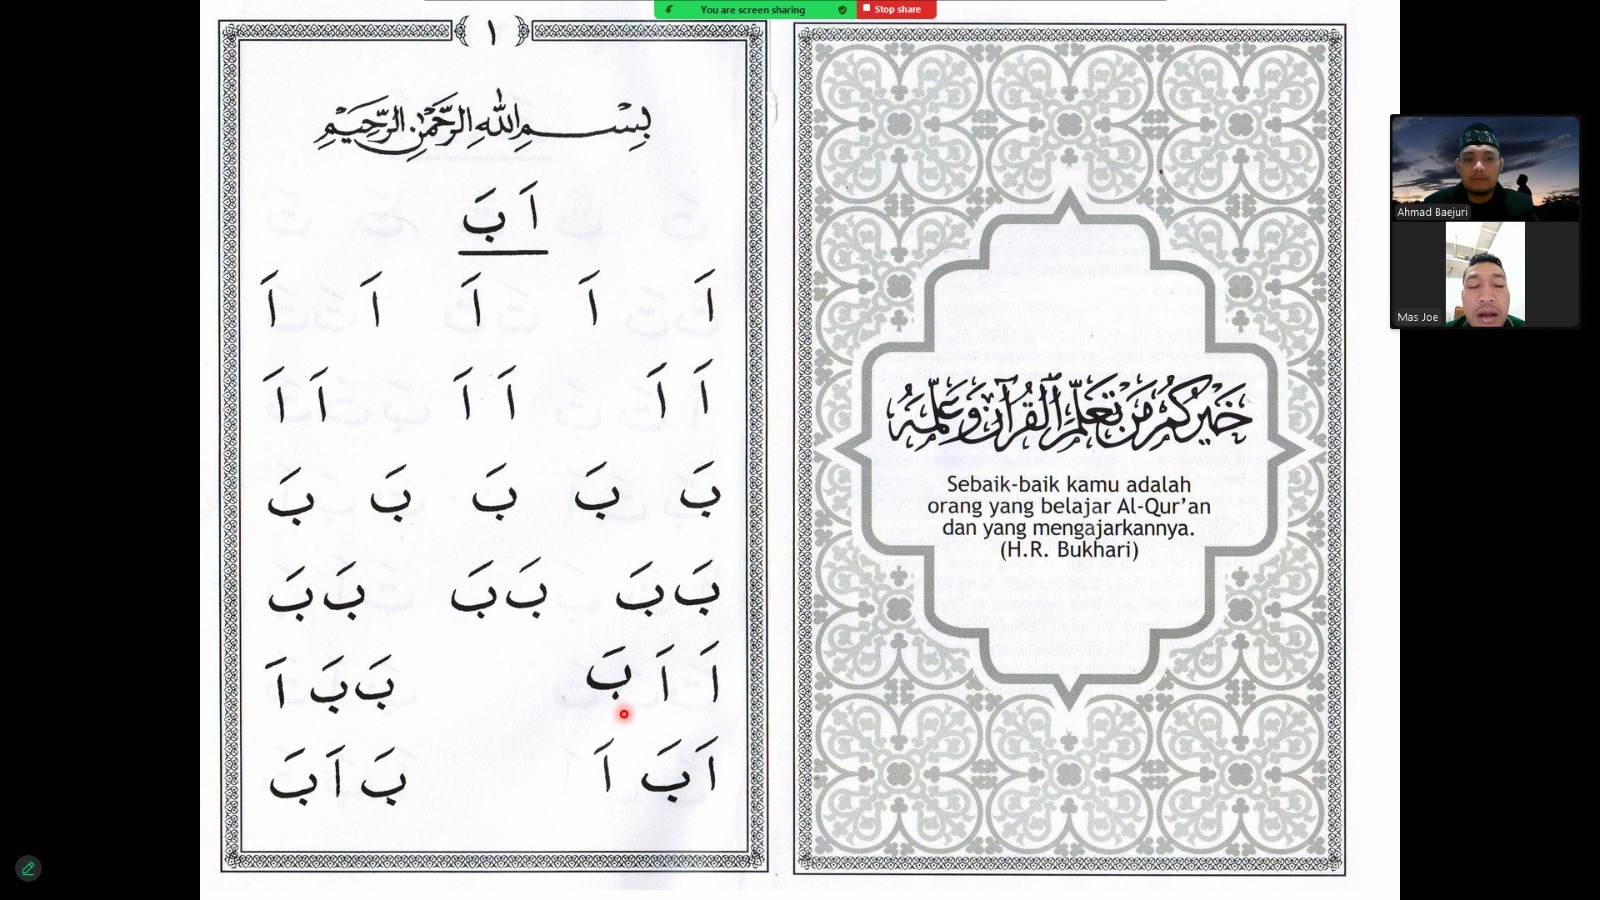 You are screen sharing
Stop share
١
بِسْمِ اللهِ الرَّحْمٰنِ الرَّحِيْمِ
اَ بَ
اَ اَ اَ اَ اَ
اَ اَ اَ اَ اَ اَ
بَ بَ بَ بَ بَ
بَ بَ بَ بَ بَ بَ
اَ اَ بَ بَ بَ اَ
اَ بَ اَ بَ اَ بَ
خَيْرُكُمْ مَنْ تَعَلَّمَ الْقُرْآنَ وَعَلَّمَهُ
Sebaik-baik kamu adalah
orang yang belajar Al-Qur’an
dan yang mengajarkannya.
(H.R. Bukhari)
Ahmad Baejuri
Mas Joe